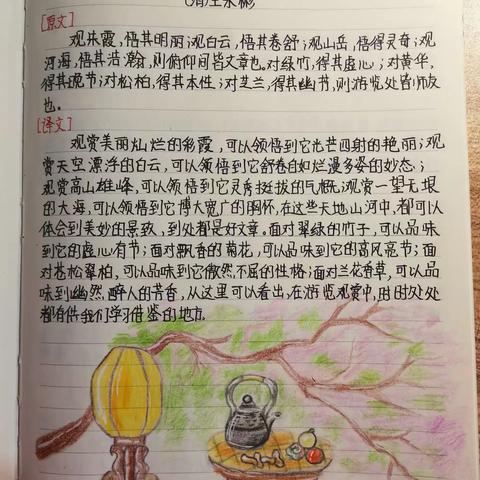 (清)王永彬
[原文]
观朱霞,悟其明丽;观白云,悟其卷舒;观山岳,悟得灵奇;观
河海,悟其浩瀚,则俯仰间皆文章也。对绿竹,得其虚心;对黄华,
得其晚节;对松柏,得其本性;对芝兰,得其幽节,则游览处皆师友
也。
[译文]
观赏美丽灿烂的彩霞,可以领悟到它光芒四射的艳丽;观
赏天空漂浮的白云,可以领悟到它舒卷自如烂漫多姿的妙态;
观赏高山雄峰,可以领悟到它灵秀挺拔的气概;观赏一望无垠
的大海,可以领悟到它博大宽广的胸怀,在这些天地山河中,都可以
体会到美妙的景致,到处都是好文章。面对翠绿的竹子,可以品味
到它的虚心有节;面对飘香的菊花,可以品味到它的高风亮节;面
对苍松翠柏,可以品味到它傲然不屈的性格;面对兰花香草,可以品
味到幽然醉人的芳香,从这里可以看出,在游览观赏中,时时处处
都有供我们学习借鉴的地方.